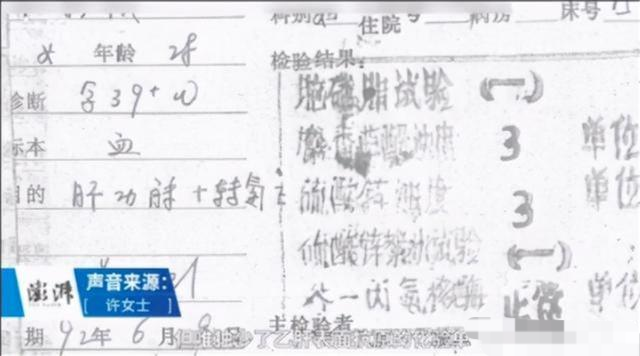 科别 住院号 病房 床号
女 年龄 28
诊断 孕39+W
标本 血
目的 肝功能+转氨
检验结果:
脑磷脂试验 (一)
麝香草酚浊度 3 单位
硫酸锌浊度 3 单位
谷一丙氨 正常 单位
主检验者
期 92年6月9日
澎湃
声音来源:
[ 许女士 ]
但唯独少了乙肝表面抗原的化验单